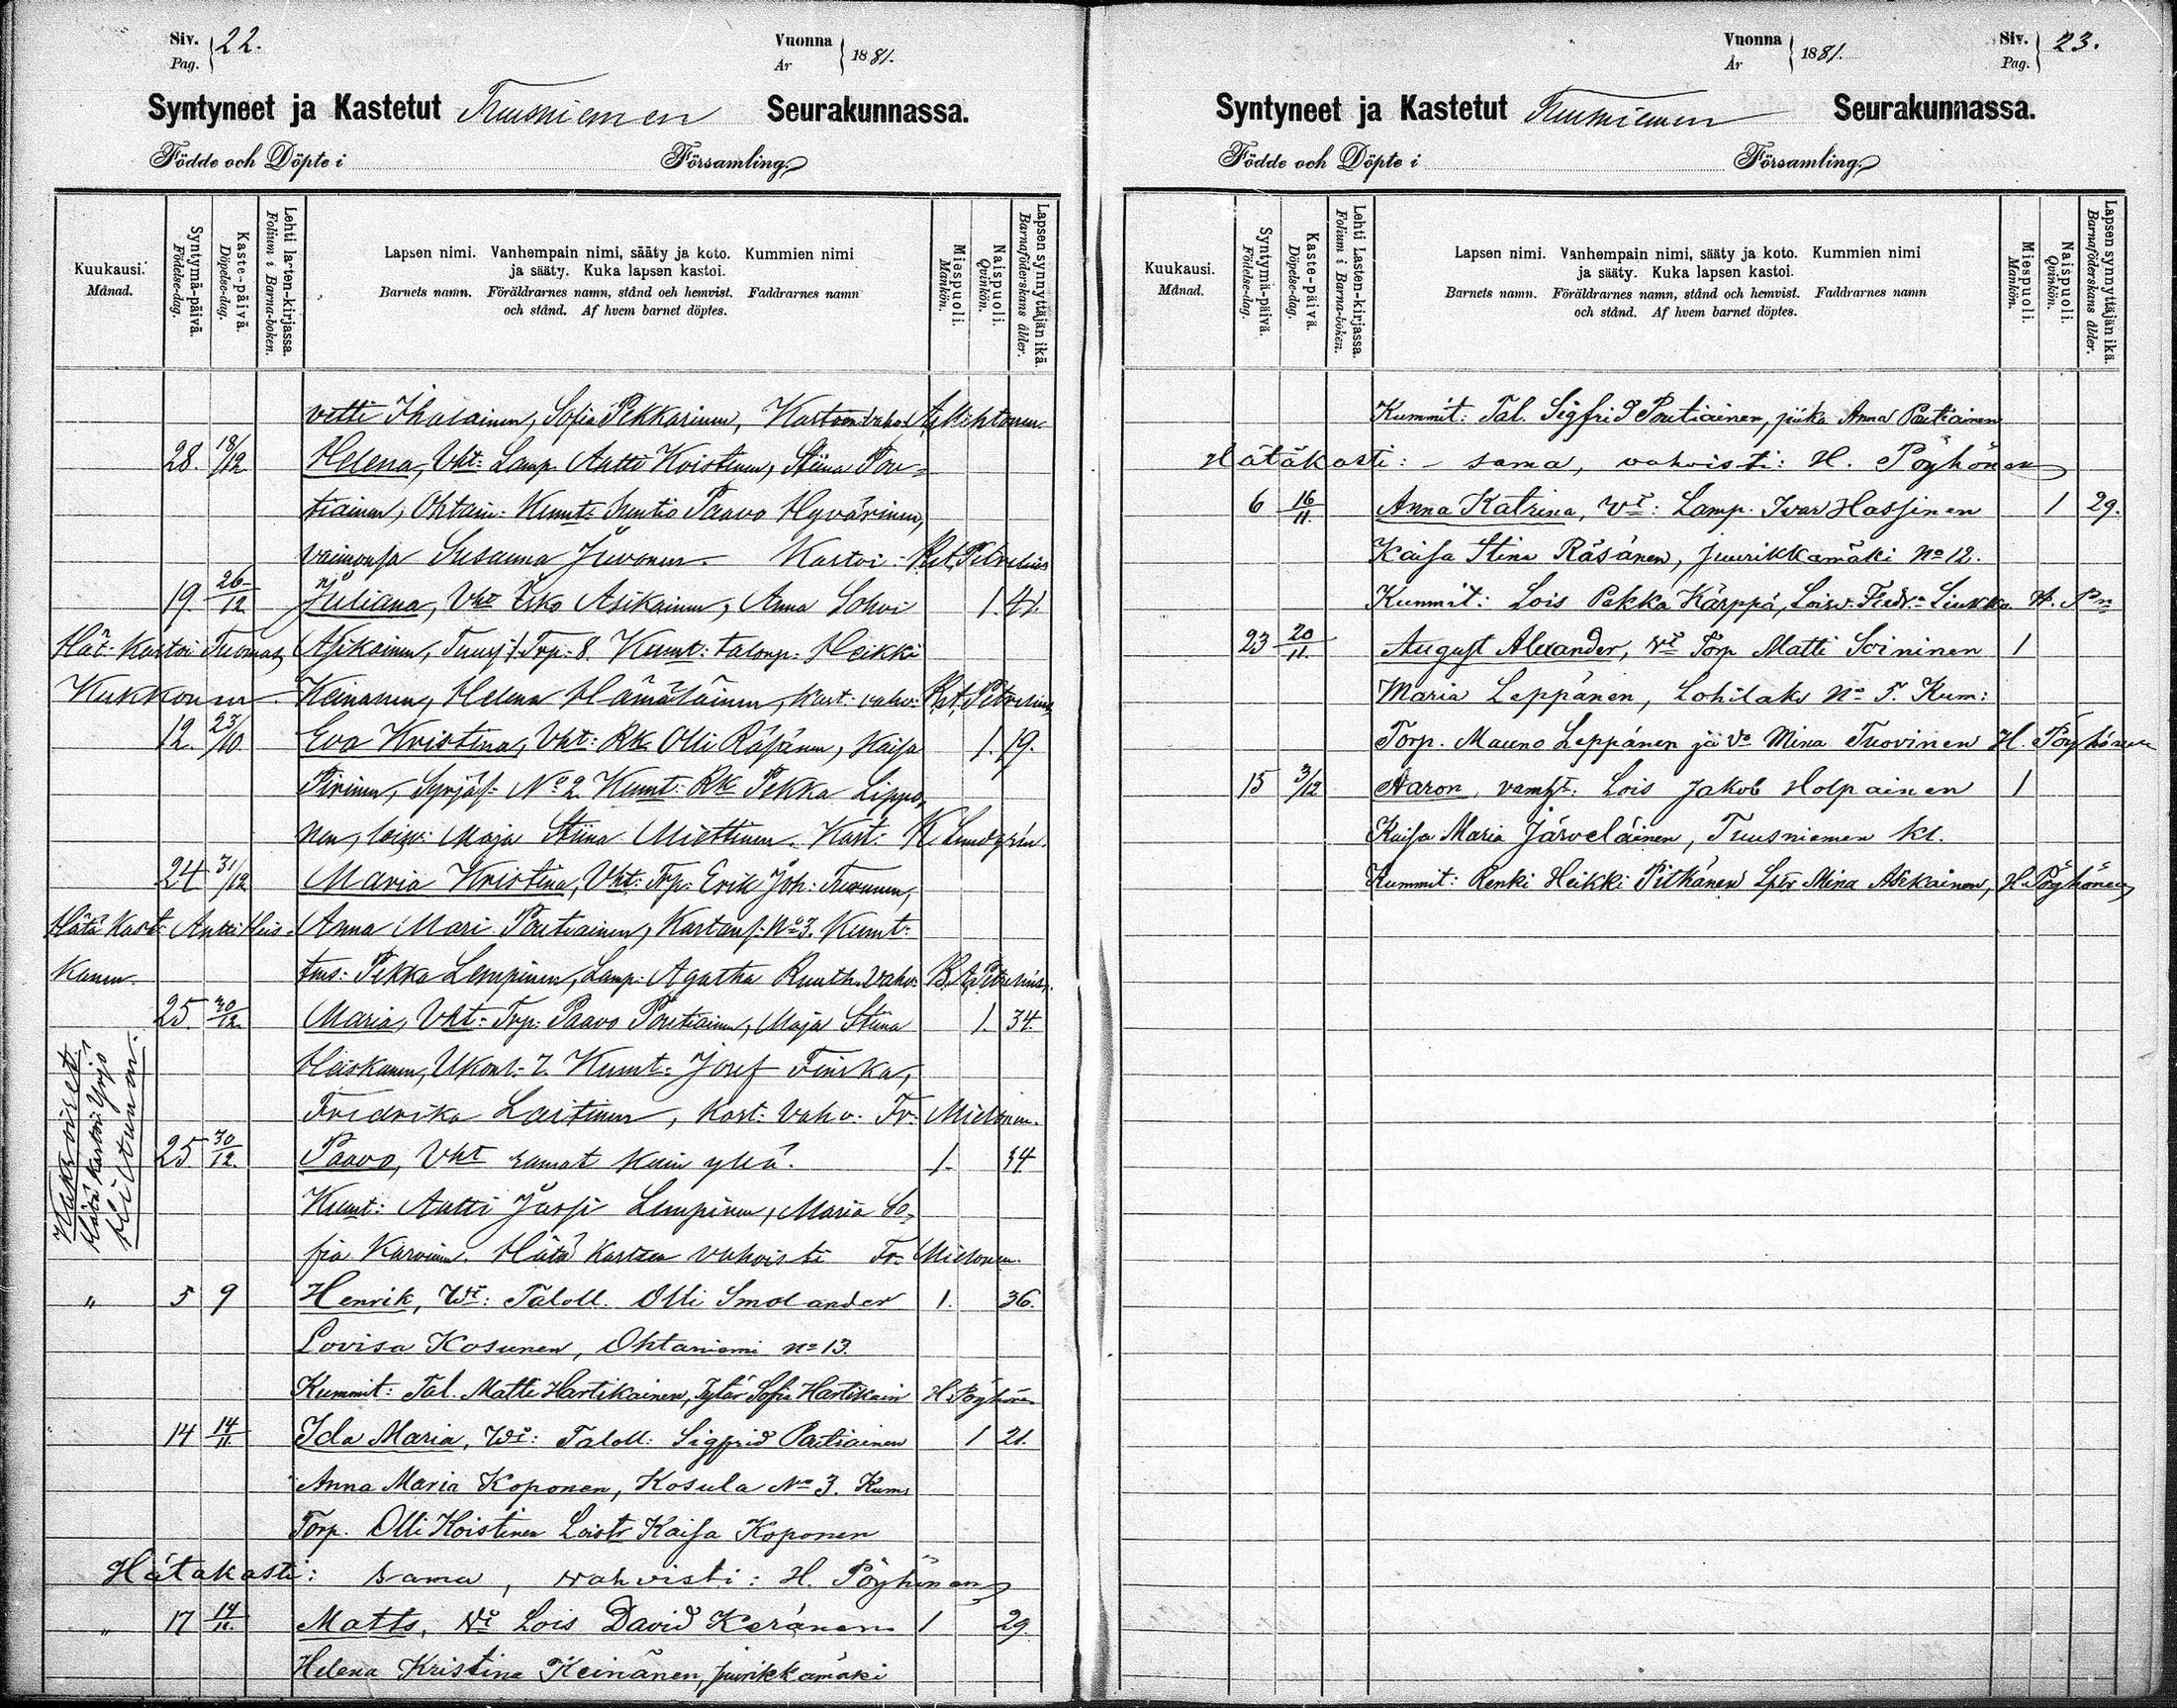 Siv. Pag. } 22.
Vuonna År } 1881.
Syntyneet ja Kastetut Tuusniemen Seurakunnassa.
Födde och Döpte i Församling.
Kuukausi. Månad.
Syntymä-päivä. Födelse-dag.
Kaste-päivä. Döpelse-dag.
Lehti lasten-kirjassa. Folium i Barna-boken.
Lapsen nimi. Vanhempain nimi, sääty ja koto. Kummien nimi
ja sääty. Kuka lapsen kastoi.
Barnets namn. Föräldrarnes namn, stånd och hemvist. Faddrarnes namn
och stånd. Af hvem barnet döptes.
Miespuoli. Mankön.
Naispuoli. Qvinkön.
Lapsen synnyttäjän ikä. Barnaföderskans ålder.
vetti Ihalainen, Sofia Pekkarinen,
28. 18/12 Helena, Vht: Lamp. Antti Koistinen, Stiina Pou-
tiainen, Ohtani: Kumt: Suntio Paavo Hyvärinen,
vaimonsa Susanna Juvonen. Kastoi: Petrelius
19. 26/12 Juliana, Vht Erko Asikainen, Anna Sohvi 1. 41.
Hät. Kastoi Tuomas Asikainen, Tuusj. Trp. 8. Kumt: talonp: Heikki
Kukkonen. Keinanen, Helena Hämäläinen, Kast. vahv: Petrelius
12. 23/10. Eva Kristina, Vht: Rk. Olli Räsänen, Kaisa 1. 19.
Pirinen, Syrjäs: No 2. Kumt: Rk Pekka Lippo,
nen, loisv: Maja Stiina Miettinen. Kast: K. Lundgrén.
24 31/12 Maria Kristina, Vht: Trp: Erik Joh: Turunen,
Hätä Kast: Antti Heis- Anna Mari Poutiainen, Kartans: No 3. Kumt:
kanen. tms: Pekka Lempinen, Lamp: Agatha Vahv: Petrelius.
25. 30/12. Maria, Vht: Trp: Paavo Poutiainen, Maja Stiina 1. 34.
Heiskanen, Ukont. 7. Kumt: Josef Finska,
Fredrika Laitinen, Kast: Vahv: Fr: Mielonen.
Kakkoiset.
Hätä Kastoi Yrjö
Hietunen.
25. 30/12. Paavo, Vht samat kuin yllä. 1. 34
Kumt: Antti Jussi Lempinen, Maria So-
fia Karvinen. Hätä Kasteen vahvisti Fr. Mielonen.
" 5 9 Henrik, Wi: Taloll. Olli Smolander 1. 36.
Lovisa Kosunen, Ohtaniemi no 13.
Kummit: Tal. Matti Hartikainen, Tytär Sofia Hartikain H. Pöyhönen
" 14 14/11. Ida Maria, Wi: Taloll: Sigfrid Poutiainen 1 21.
Anna Maria Koponen, Kosula No 3. Kum:
Torp. Olli Koistinen Loistr Kaisa Koponen
Hätäkasti: sama, vahvisti: H. Pöyhönen
" 17 14/11. Matts, Wi Lois David Keränen 1 29.
Helena Kristina Keinänen, Juurikkamäki
Vuonna År } 1881.
Siv. Pag. } 23.
Syntyneet ja Kastetut Tuusniemen Seurakunnassa.
Födde och Döpte i Församling.
Kuukausi. Månad.
Syntymä-päivä. Födelse-dag.
Kaste-päivä. Döpelse-dag.
Lehti Lasten-kirjassa. Folium i Barna-boken.
Lapsen nimi. Vanhempain nimi, sääty ja koto. Kummien nimi
ja sääty. Kuka lapsen kastoi.
Barnets namn. Föräldrarnes namn, stånd och hemvist. Faddrarnes namn
och stånd. Af hvem barnet döptes.
Miespuoli. Mankön.
Naispuoli. Qvinkön.
Lapsen synnyttäjän ikä. Barnaföderskans ålder.
Kummit: Tal. Sigfrid Poutiainen, piika Anna Poutiainen
Hätäkasti: sama, vahvisti: H. Pöyhönen
6 16/11. Anna Katrina, Vi: Lamp. Ivar Hassinen 1 29.
Kaisa Stina Räsänen, Juurikkamäki No 12.
Kummit: Lois Pekka Kärppä, Loisv. Fredr: Liukko H. Pn
23 20/11. August Alexander, Vi Torp Matti Soininen 1
Maria Leppänen, Lohilaks No 5. Kum:
Torp. Mauno Leppänen ja Vo Mina Tuovinen H. Pöyhönen
15 3/12 Aaron, vamht: Lois Jakob Holpainen 1
Kaisa Maria Järveläinen, Tuusniemen kl.
Kummit: Renki Heikki Pitkänen Mina Asikainen, H. Pöyhönen